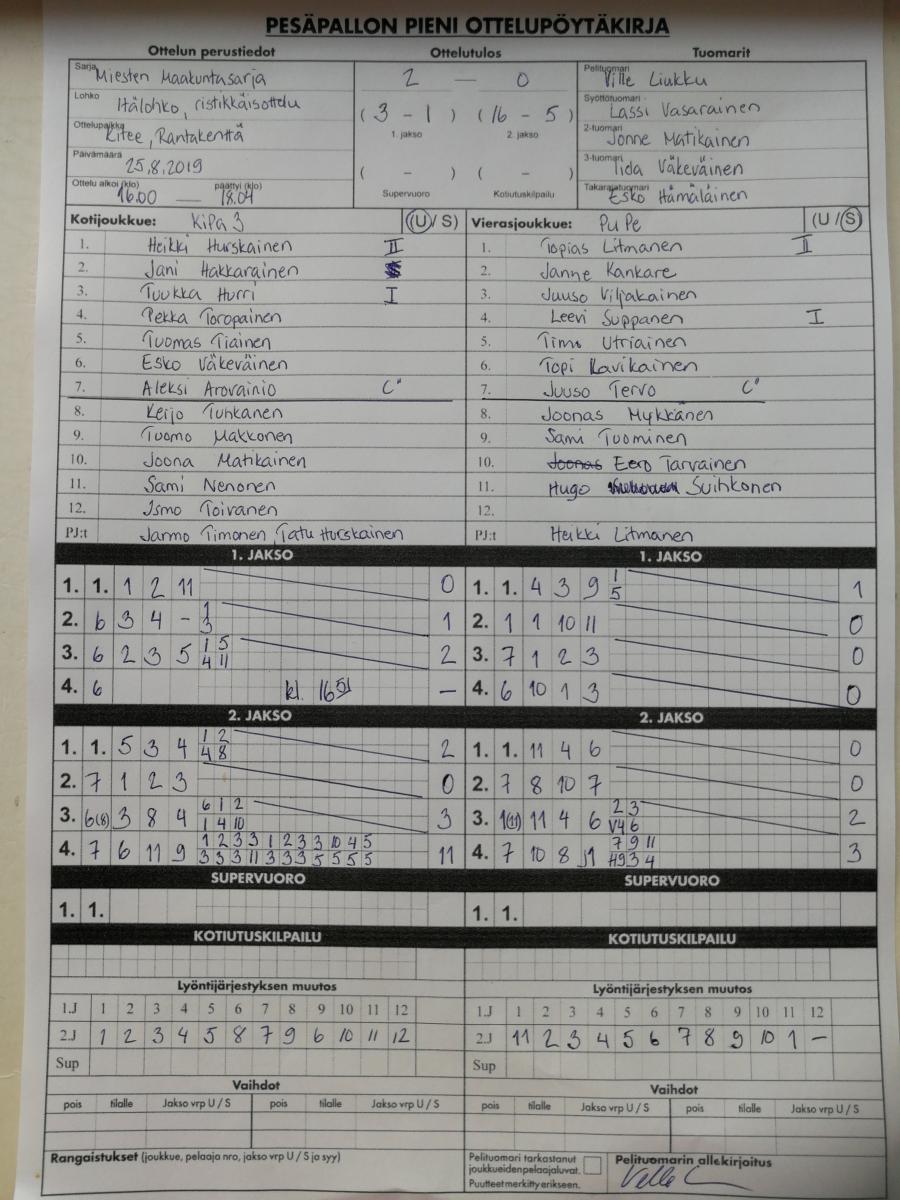 PESÄPALLON PIENI OTTELUPÖYTÄKIRJA
Ottelun perustiedot Ottelutulos Tuomarit
Sarja Miesten Maakuntasarja 2 — 0 Pelituomari Ville Liukku
Lohko Itälohko, ristikkäisottelu (3 - 1) (16 - 5) Syöttötuomari Lassi Vasarainen
Ottelupaikka Kitee, Rantakenttä 1. jakso 2. jakso 2-tuomari Jonne Matikainen
Päivämäärä 25.8.2019 ( - ) ( - ) 3-tuomari Iida Väkeväinen
Ottelu alkoi (klo) 16.00 — päättyi (klo) 18.04 Supervuoro Kotiutuskilpailu Takarajatuomari Esko Hämäläinen
Kotijoukkue: KiPa 3 (U / S) Vierasjoukkue: PuPe (U / S)
1. Heikki Hurskainen II 1. Topias Litmanen II
2. Jani Hakkarainen 2. Janne Kankare
3. Tuukka Hurri I 3. Juuso Viljakainen
4. Pekka Toropainen 4. Leevi Suppanen I
5. Tuomas Tiainen 5. Timo Utriainen
6. Esko Väkeväinen 6. Topi Kavikainen
7. Aleksi Arovainio C" 7. Juuso Tervo C"
8. Keijo Tuhkanen 8. Joonas Mykkänen
9. Tuomo Makkonen 9. Sami Tuominen
10. Joona Matikainen 10. Joonas Eero Tarvainen
11. Sami Nenonen 11. Hugo Suihkonen
12. Ismo Toivanen 12.
PJ:t Jarmo Timonen, Tatu Hurskainen PJ:t Heikki Litmanen
1. JAKSO 1. JAKSO
1. 1. 1 2 11 0 1. 1. 4 3 9 1/5 1
2. 6 3 4 - 1/3 1 2. 1 1 10 11 0
3. 6 2 3 5 1/4 5/11 2 3. 7 1 2 3 0
4. 6 kl. 16 51 — 4. 6 10 1 3 0
2. JAKSO 2. JAKSO
1. 1. 5 3 4 1/4 2/8 2 1. 1. 11 4 6 0
2. 7 1 2 3 0 2. 7 8 10 7 0
3. 6(8) 3 8 4 6/1 1/4 2/10 3 3. 1(11) 11 4 6 2/V4 3/6 2
4. 7 6 11 9 1/3 2/3 3/3 3/11 1/3 2/3 3/3 3/5 10/5 4/5 5/5 11 4. 7 10 8 7 9 11 3
SUPERVUORO SUPERVUORO
1. 1. 1. 1.
KOTIUTUSKILPAILU KOTIUTUSKILPAILU
Lyöntijärjestyksen muutos Lyöntijärjestyksen muutos
1.J 1 2 3 4 5 6 7 8 9 10 11 12 1.J 1 2 3 4 5 6 7 8 9 10 11 12
2.J 1 2 3 4 5 8 7 9 6 10 11 12 2.J 11 2 3 4 5 6 7 8 9 10 1 —
Sup Sup
Vaihdot Vaihdot
pois tilalle Jakso vrp U / S pois tilalle Jakso vrp U / S pois tilalle Jakso vrp U / S pois tilalle Jakso vrp U / S
Rangaistukset (joukkue, pelaaja nro, jakso vrp U / S ja syy) Pelituomari tarkastanut Pelituomarin allekirjoitus
joukkueiden pelaajaluvat.
Puutteet merkitty erikseen.